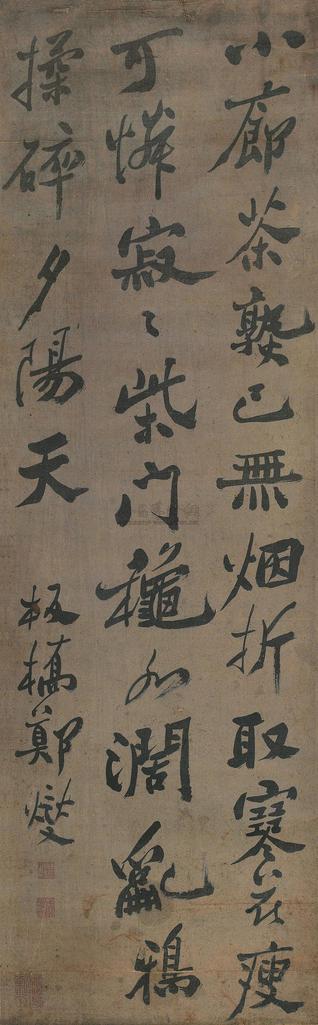 小廊茶熟已無烟折取寒花瘦
可憐寂〻柴門龝水濶亂鴉
揉碎夕陽天
板橋鄭燮